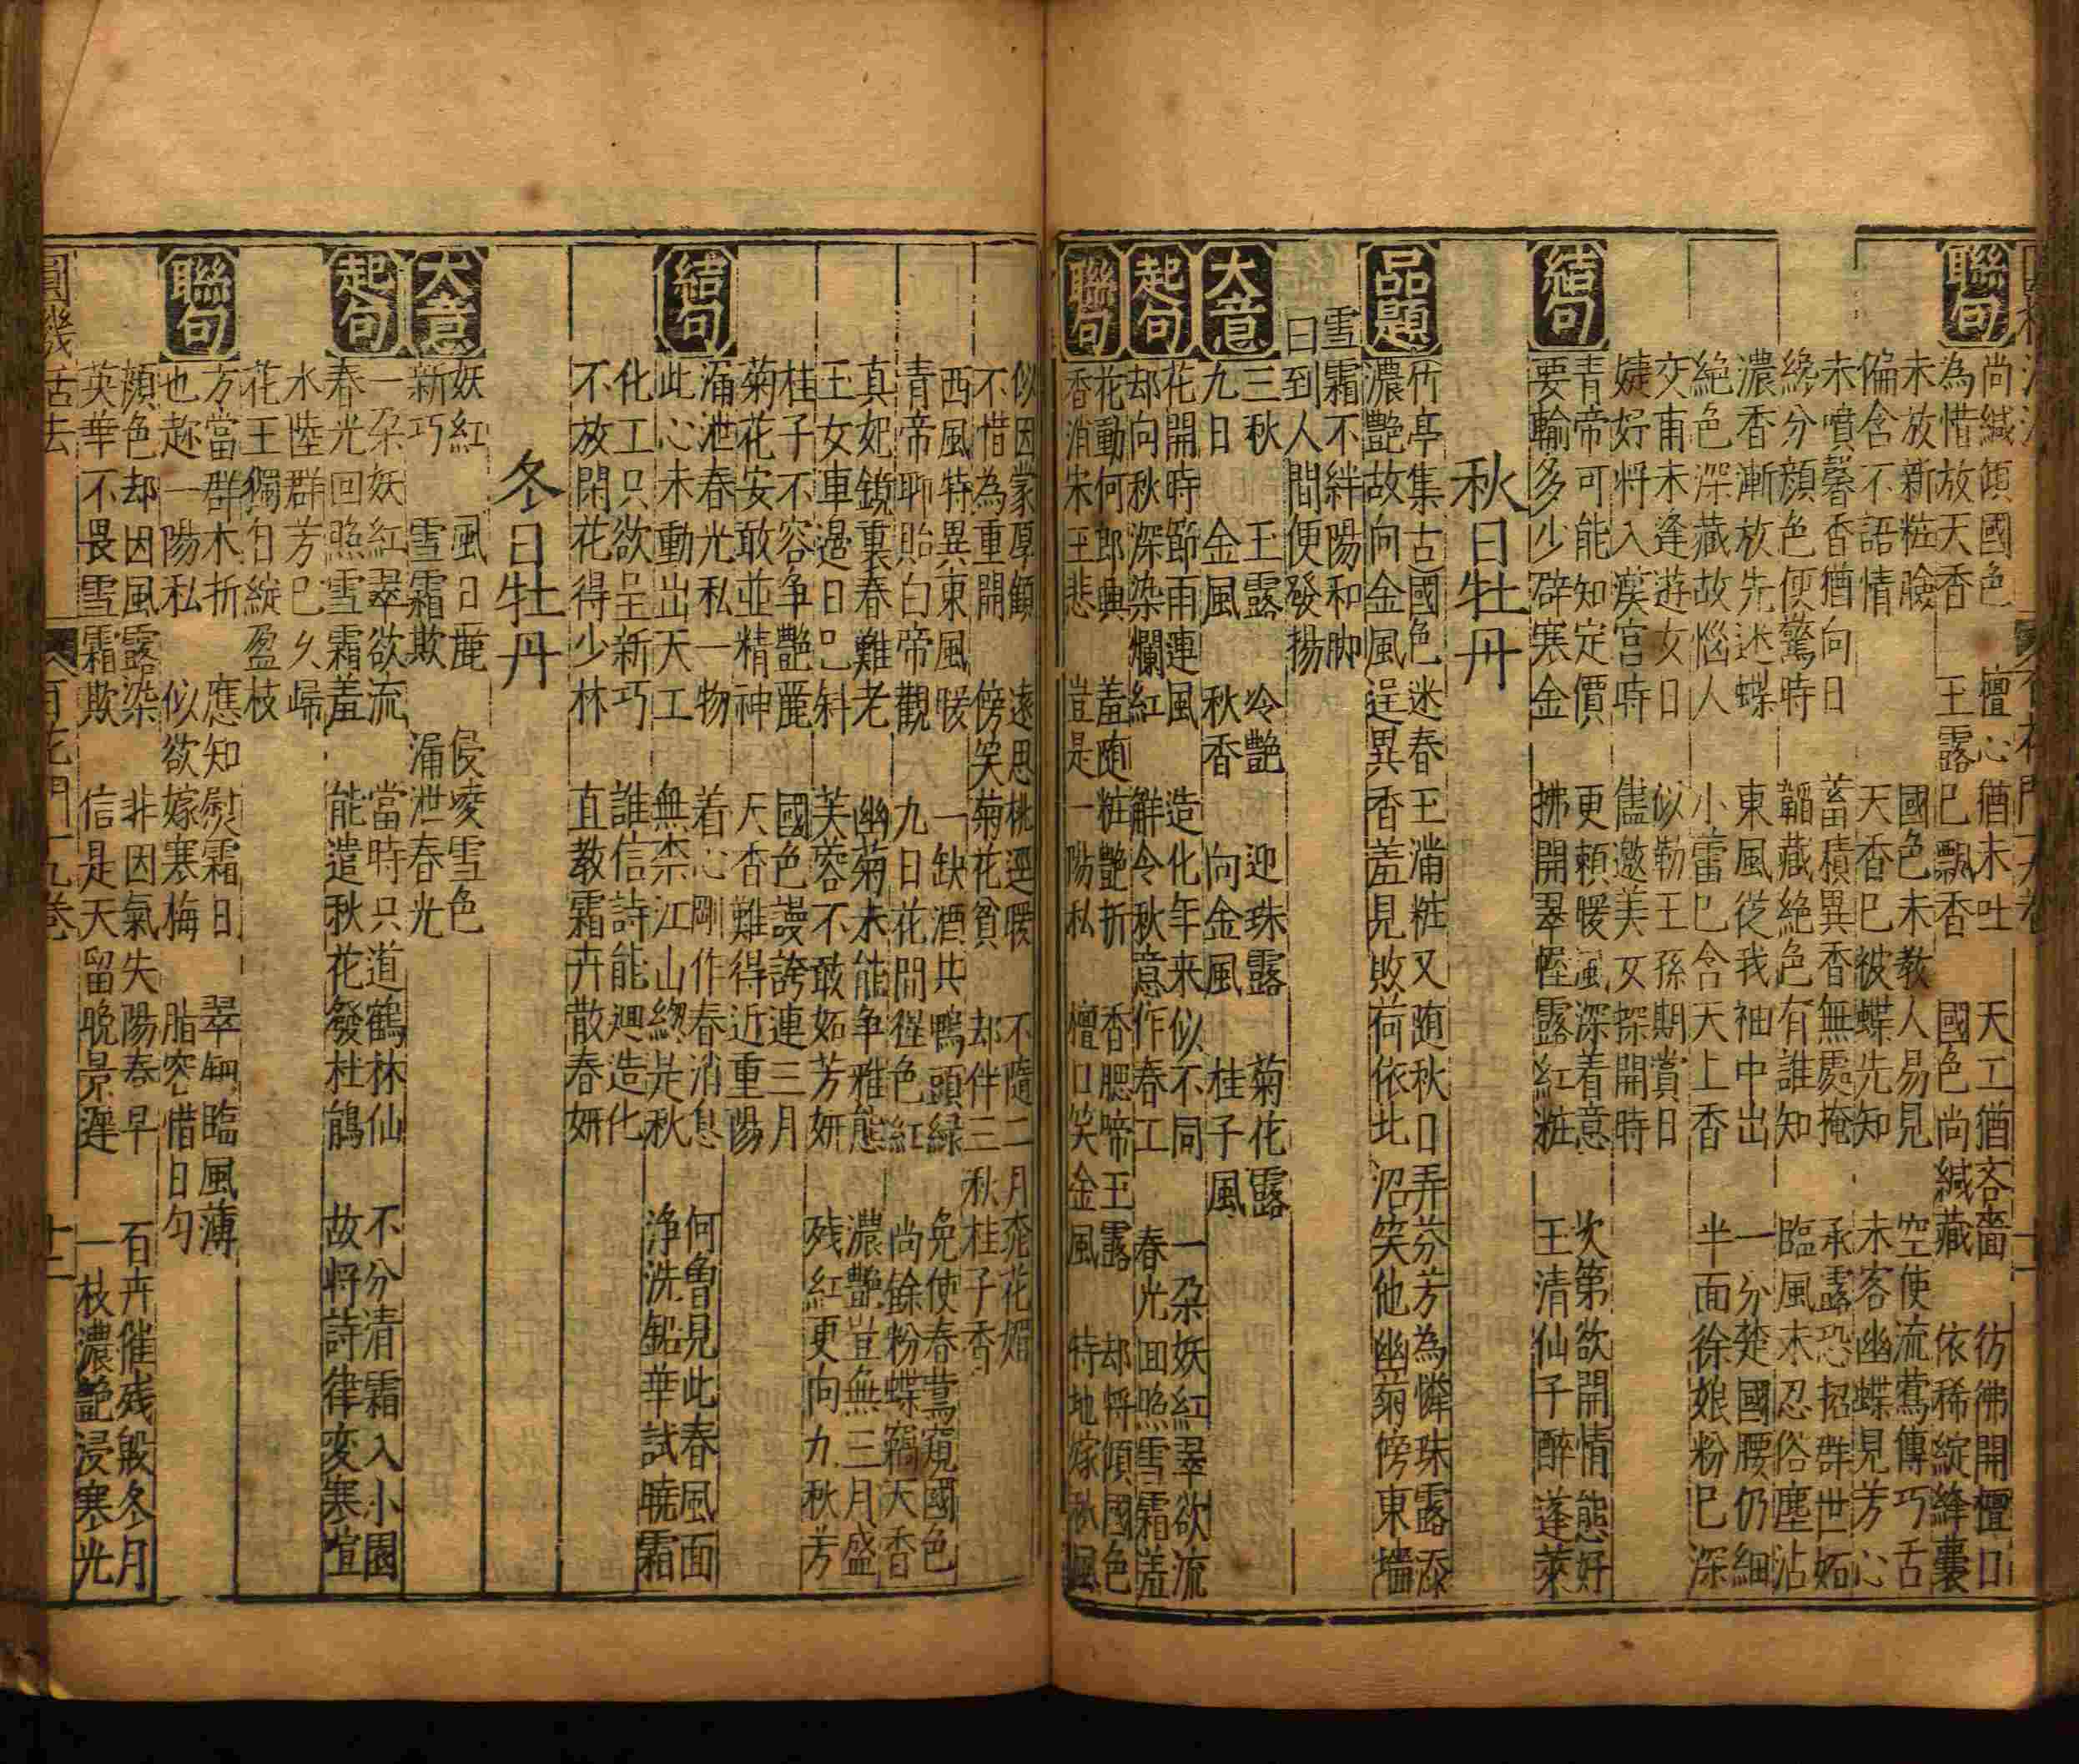 聯句
尚緘傾國色 檀心猶未吐 天工猶吝嗇 彷彿開檀口
為惜放天香 玉露已飄香 國色尚緘藏 依稀綻絳囊
未放新粧臉 國色未教人易見 空使流鶯傳巧舌
偏含不語情 天香已被蝶先知 未容幽蝶見芳心
未噴馨香猶向日 蓄積異香無處掩 承露恐招群世妬
纔分顔色便驚時 韜藏絶色有誰知 臨風未忍俗塵沾
濃香漸放先迷蝶 東風從我袖中出 一分楚國腰仍細
絶色深藏故惱人 小蕾已含天上香 半面徐娘粉已深
交甫未逢遊女日 似勒王孫期賞日
婕妤將入漢宮時 儘邀美女探開時
結句
青帝可能知定價 更頼暖風深着意 次第欲開情態好
要輸多少辟寒金 拂開翠幄露紅粧 玉清仙子醉蓬萊
秋日牡丹
品題
竹亭集古國色迷春玉滿粧又随秋日弄芬芳為憐珠露添
濃艷故向金風逞異香羞見敗荷依北沼笑他幽菊傍東墻
雪霜不絆陽和脚
曰到人間便發揚
大意
三秋 玉露 冷艷 迎珠露 菊花露
九日 金風 秋香 向金風 桂子風
起句
花開時節雨連風 造化年来似不同 一朶妖紅翠欲流
却向秋深染爛紅 觧令秋意作春工 春光囬照雪霜羞
聯句
花動何郎興 羞随粧艷折 香腮啼玉露 却将傾國色
香消宋玉悲 豈是一陽私 檀口笑金風 特地嫁秋風
似因蒙厚顧 遠思桃逕暖 不隨二月桃花媚
不惜為重開 傍笑菊花貧 却伴三秋桂子香
西風特異東風暖 一缺酒共鴨頭緑 免使春鶯窺國色
青帝聊貽白帝觀 九日花間徑色紅 尚餘粉蝶竊天香
真妃鏡裏春難老 幽菊未能争雅態 濃艷豈無三月盛
玉女車邉日已斜 芙蓉不敢妬芳妍 残紅更向九秋芳
桂子不容争艷麗 國色謾誇連三月
菊花安敢並精神 天香難得近重陽
漏泄春光私一物 着心剛作春消息 何曾見此春風面
此心未動出天工 無柰江山緫是秋 浄洗鉛華試暁霜
結句
化工只欲呈新巧 誰信詩能廻造化
不放閑花得少林 直教霜卉散春妍
冬日牡丹
大意
妖紅 風日麗 侵凌雪色
新巧 雪霜欺 漏泄春光
起句
一朶妖紅翠欲流 當時只道鶴林仙 不分清霜入小園
春光回照雪霜羞 能遣秋花發杜鵑 故将詩律变寒暄
水陸群芳已久歸
花王獨自綻盈枝
聯句
方當群木折 應知慰霜日 翠鈿臨風薄
也趂一陽私 似欲嫁寒梅 脂密惜日匀
顔色却因風露染 非因氣失陽春早 百卉催残般冬月
英華不畏雪霜欺 信是天留晩景遲 一枝濃艷浸寒光
圓機活法 百花門十九卷 十二